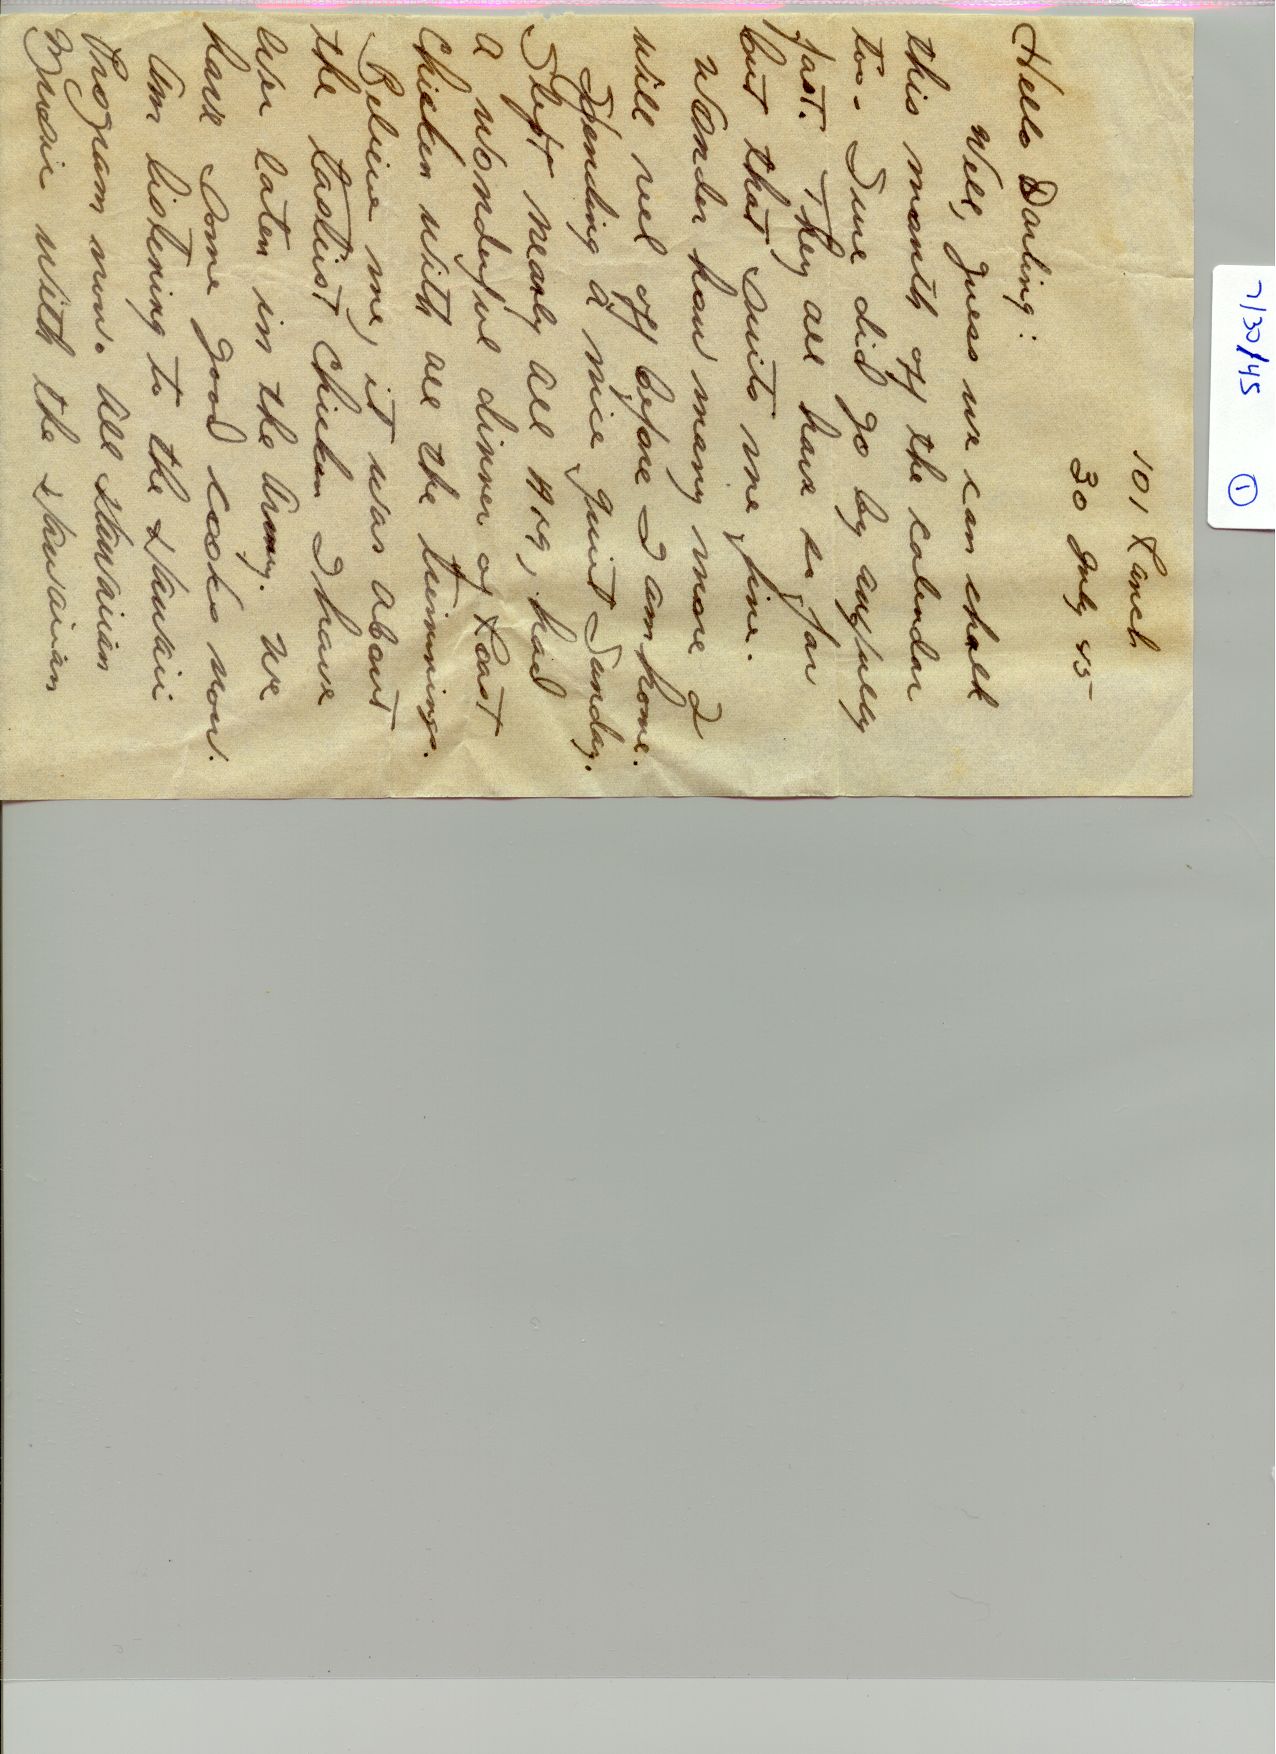 7/30/45 1
101 Ranch
30 July 45
Hello Darling:
Well, guess we can chalk
this month off the calendar
too. Sure did go by awfully
fast. They all have so far
but that suits me fine.
Wonder how many more I
will rel off before I am home.
Spending a nice quiet Sunday.
Slept nearly all A.M., had
a wonderful dinner of Roast
Chicken with all the trimmings.
Believe me, it was about
the tastiest chicken I have
ever eaten in the Army. We
have some good cooks now.
Am listening to the Hawaii
Program now. All Hawaiian
Music with the Hawaiian